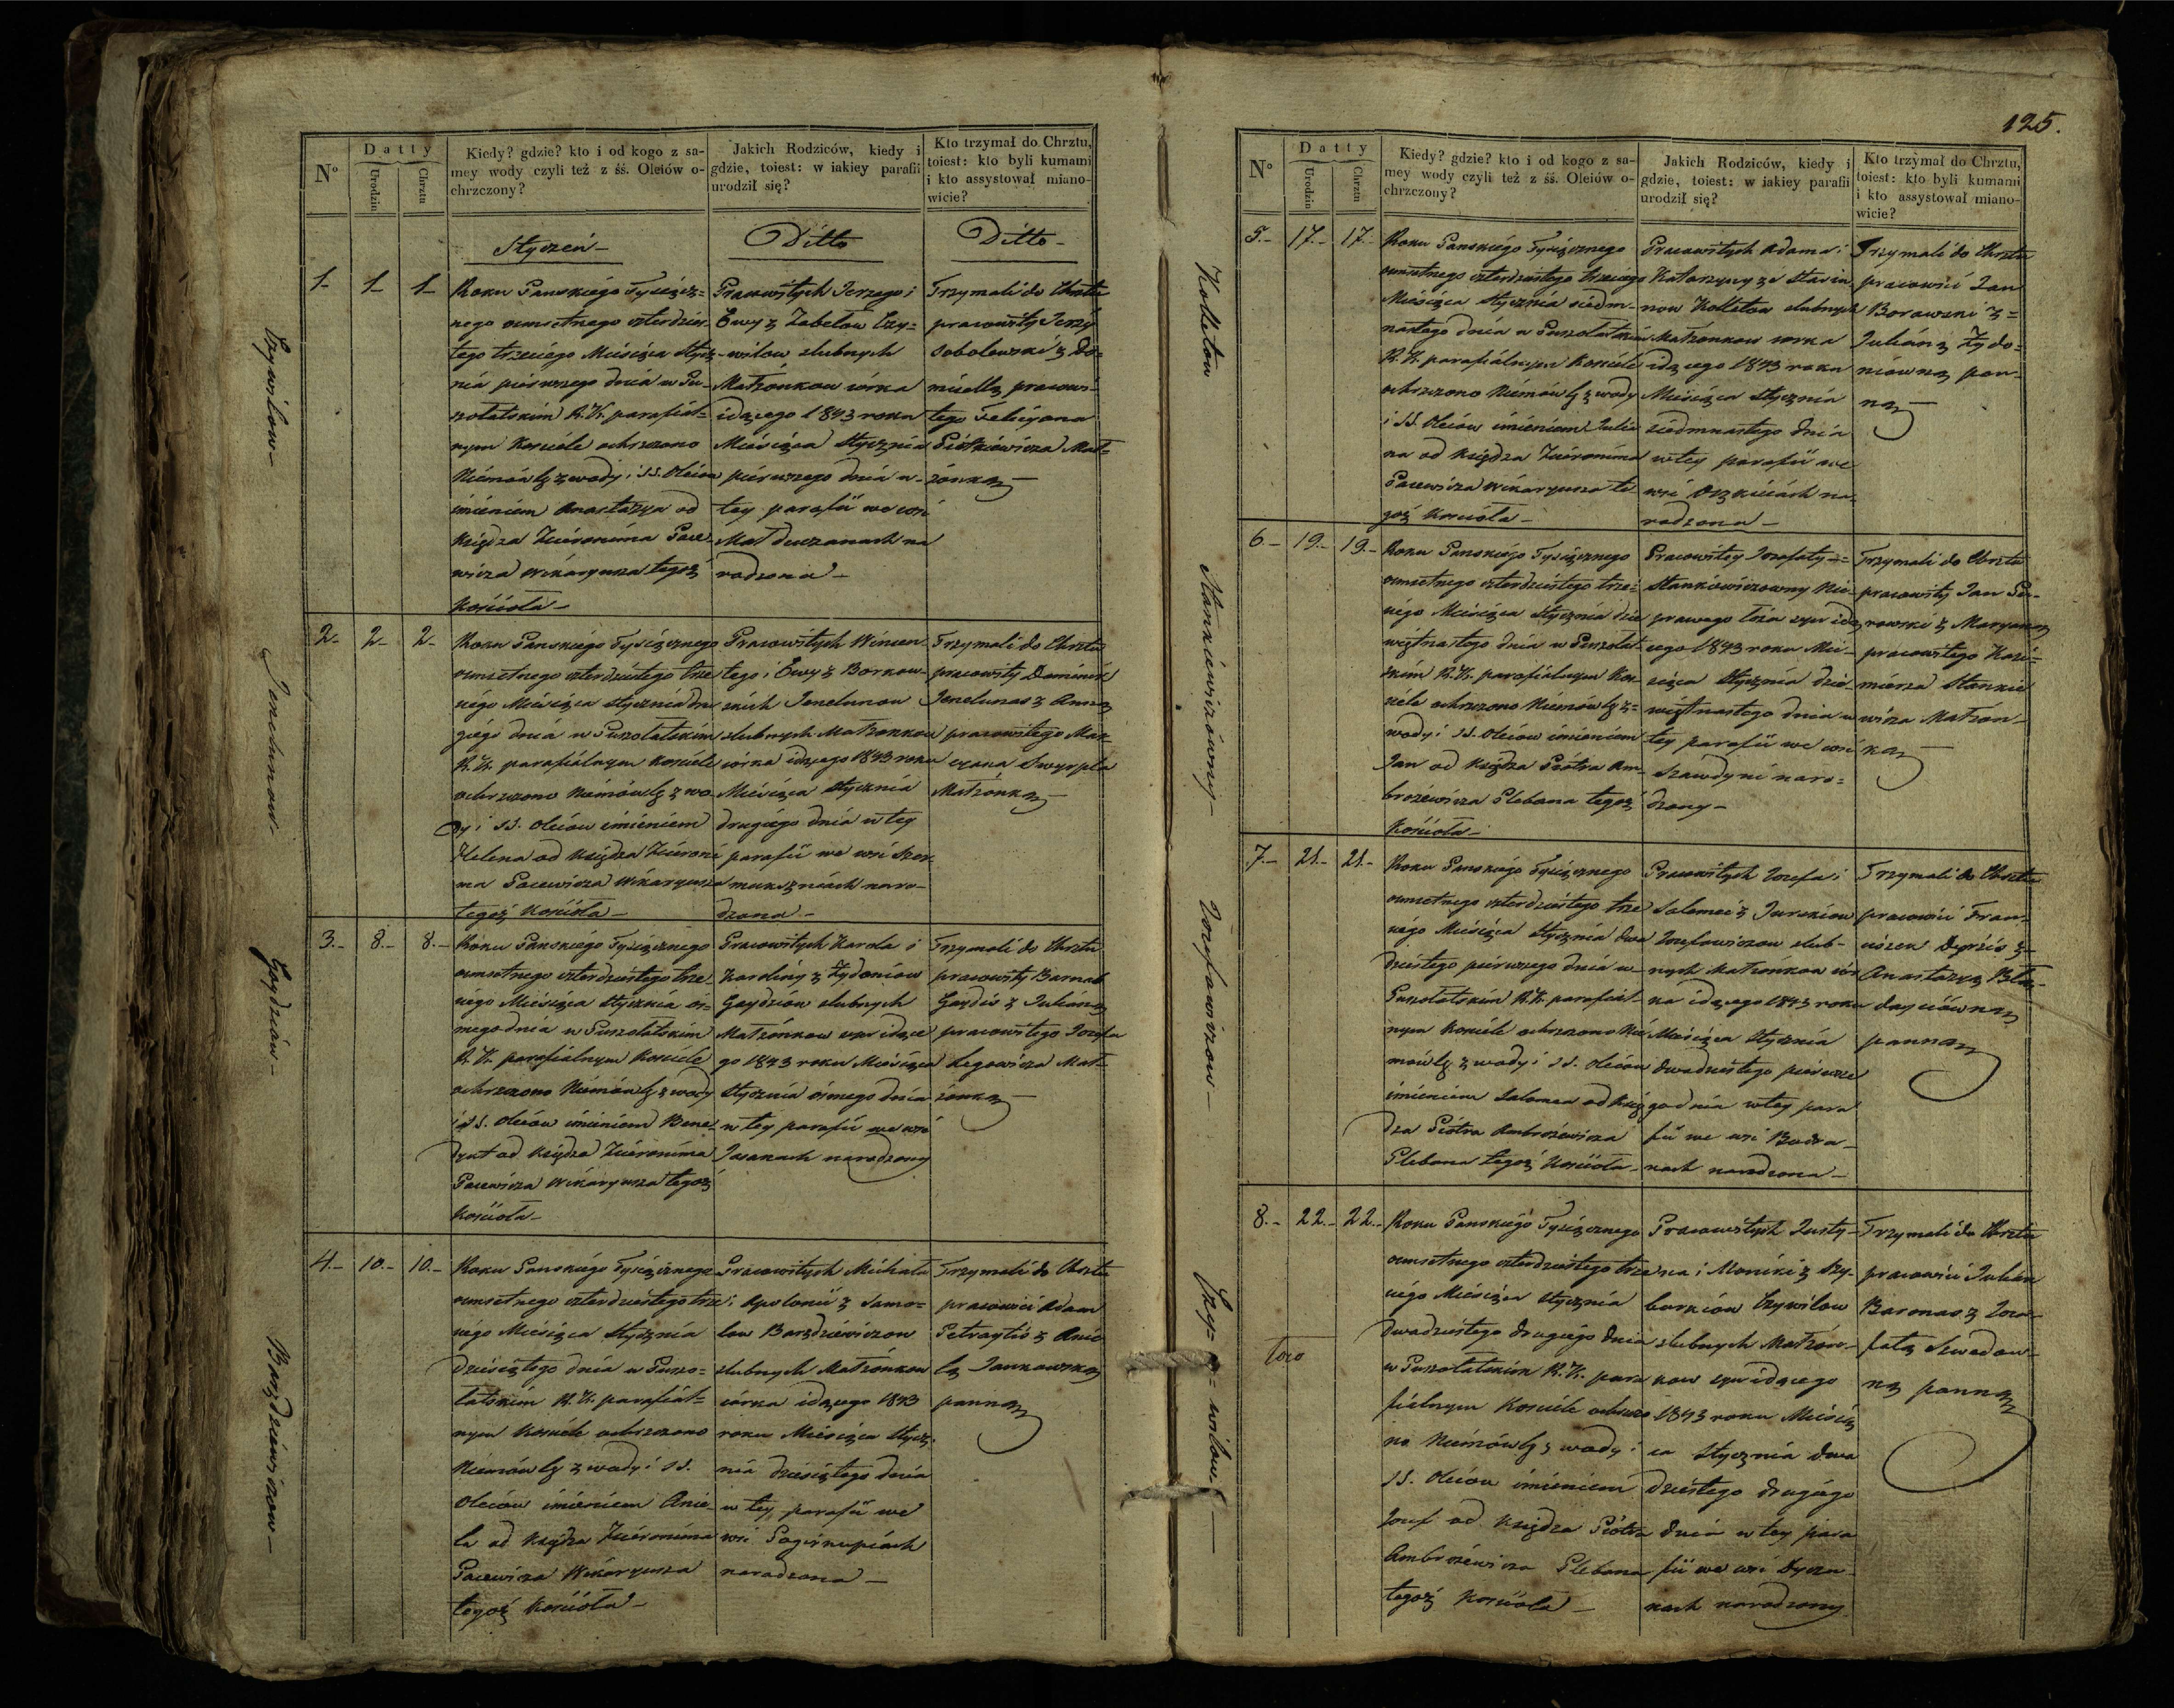 125.
Nº
Datty
Urodzin
Chrztu
Kiedy? gdzie? kto i od kogo z sa-
mey wody czyli też z śś. Oleiów o-
chrzczony?
Jakich Rodziców, kiedy i
gdzie, toiest: w iakiey parafii
urodził się?
Kto trzymał do Chrztu,
toiest: kto byli kumami
i kto assystował miano-
wicie?
Styczeń
Ditto
Ditto
Czywilow
1 1 1
Roku Panskiego Tysiącz-
nego osmsetnego czterdzies-
tego trzeciego Miesiąca Stycz-
nia pierwszego dnia w Pu-
szołatskim R. K. parafial-
nym Kosciele ochrzczono
Niemowlę z wody i SS. Oleiow
imieniem Anastazya od
Księdza Hieronima Pace-
wicza Wikaryusza tegoż
Kościoła
Pracowitych Jerzego i
Ewy z Zabelow Czy-
wilow slubnych
Małżonkow córka
idącego 1843 roku
Miesiąca Stycznia
pierwszego dnia w
tey parafii we wsi
na
rodzona
Trzymali do Chrztu
pracowity Jerzy
Sobolewski z Do-
micellą pracowi-
tego Felicyana
Piotkiewicza Mał-
żonką
Jenelunow
2 2 2
Roku Panskiego Tysiącznego
osmsetnego czterdziestego trze
ciego Miesiąca Stycznia dru
giego dnia w Puszołatskim
R. K. parafialnym Kosciele
ochrzczono Niemowlę z wo
dy i SS. Oleiow imieniem
Helena od Księdza Hieroni
ma Pacewicza Wikaryusza
tegoż Kościoła
Pracowitych Wincen
tego i Ewy z Borkow
skich Jenelunow
slubnych Małżonkow
córka idącego 1843 roku
Miesiąca Stycznia
drugiego dnia w tey
parafii we wsi
naro-
dzona
Trzymali do Chrztu
pracowity Dominik
Jenelunas z Anną
pracowitego Mar-
cyana Swyrpla
Małżonką
Goydziow
3. 8. 8.
Roku Panskiego Tysiącznego
osmsetnego czterdziestego trze-
ciego Miesiąca Stycznia os-
mego dnia w Puszołatskim
R. K. parafialnym Kosciele
ochrzczono Niemowlę z wody
i SS. Oleiow imieniem Bene-
dykt od Księdza Hieronima
Pacewicza Wikaryusza tegoż
Kościoła
Pracowitych Karola i
Karoliny z Żydoniow
Goydziow slubnych
Małżonkow syn idące
go 1843 roku Miesiąca
Stycznia osmego dnia
w tey parafii we wsi
narodzony
Trzymali do Chrztu
pracowity Barnab
Goydis z Julianą
pracowitego Jozefa
Legowicza Mał-
żonką
Barzdziewiczow
4. 10. 10.
Roku Panskiego Tysiącznego
osmsetnego czterdziestego trze
ciego Miesiąca Stycznia
dziesiątego dnia w Puszo-
łatskim R. K. parafial-
nym Kosciele ochrzczono
Niemowlę z wody i SS.
Oleiow imieniem Anie
la od Księdza Hieronima
Pacewicza Wikaryusza
tegoż Kościoła
Pracowitych Michała
i Apolonii z Samo-
low Barzdziewiczow
slubnych Małżonkow
córka idącego 1843
roku Miesiąca Stycz-
nia dziesiątego dnia
w tey parafii we
wsi
narodzona
Trzymali do Chrztu
pracowici Adam
Petraytis z Anie
lą Jankowską
panną
Nº
Datty
Urodzin
Chrztu
Kiedy? gdzie? kto i od kogo z sa-
mey wody czyli też z śś. Oleiów o-
chrzczony?
Jakich Rodziców, kiedy i
gdzie, toiest: w iakiey parafii
urodził się?
Kto trzymał do Chrztu,
toiest: kto byli kumami
i kto assystował miano-
wicie?
Kolletow
5. 17. 17.
Roku Panskiego Tysiącznego
osmsetnego czterdziestego trzeciego
Miesiąca Stycznia siedm-
nastego dnia w Puszołatskim
R. K. parafialnym Kosciele
ochrzczono Niemowlę z wody
i SS. Oleiow imieniem Julia
na od Księdza Hieronima
Pacewicza Wikaryusza te
goż Kościoła
Pracowitych Adama i
Katarzyny ze
Kolletow slubnych
Małżonkow corka
idącego 1843 roku
Miesiąca Stycznia
siedmnastego dnia
w tey parafii we
wsi na
rodzona
Trzymali do Chrztu
pracowici Jan
Borowski z
Julianą Żydo-
niowną pan-
ną
Stankiewiczówny
6. 19. 19.
Roku Panskiego Tysiącznego
osmsetnego czterdziestego trze-
ciego Miesiąca Stycznia dzie
więtnastego dnia w Puszołat-
skim R. K. parafialnym Kos-
ciele ochrzczono Niemowlę z
wody i SS. Oleiow imieniem
Jan od Księdza Piotra Am-
brożewicza Plebana tegoż
Kościoła
Pracowitey Jozefaty
Stankiewiczowny Nie-
prawego łoża syn idą
cego 1843 roku Mie-
siąca Stycznia dzie-
więtnastego dnia w
tey parafii we wsi
naro-
dzony
Trzymali do Chrztu
pracowity Jan
z Maryanną
pracowitego Kazi-
mierza Stankie
wicza Małżon-
ką
Jozefowiczow
7. 21. 21.
Roku Panskiego Tysiącznego
osmsetnego czterdziestego trze
ciego Miesiąca Stycznia dwu
dziestego pierwszego dnia w
Puszołatskim R. K. parafial-
nym Kosciele ochrzczono Nie
mowlę z wody i SS. Oleiow
imieniem Salomea od Księ
dza Piotra Ambrożewicza
Plebana tegoż Kościoła
Pracowitych Jozefa i
Salomei z
Jozefowiczow slub-
nych Małżonkow cór
ka idącego 1843 roku
Miesiąca Stycznia
dwudziestego pierwsze
go dnia w tey para
fii we wsi
narodzona
Trzymali do Chrztu
pracowici Fran-
ciszek z
Anastazyą
panną
Czywilow
8. 22. 22.
Roku Panskiego Tysiącznego
osmsetnego czterdziestego trze
ciego Miesiąca Stycznia
dwudziestego drugiego dnia
w Puszołatskim R. K. para
fialnym Kosciele ochrzczo
no Niemowlę z wody i
SS. Oleiow imieniem
Jozef od Księdza Piotra
Ambrożewicza Plebana
tegoż Kościoła
Pracowitych Justy-
na i Moniki z Szy-
Czywilow
slubnych Małżon-
kow syn idącego
1843 roku Miesią
ca Stycznia dwu
dziestego drugiego
dnia w tey para
fii we wsi
narodzony
Trzymali do Chrztu
pracowici Julian
Baronas z Joze-
fatą
panną